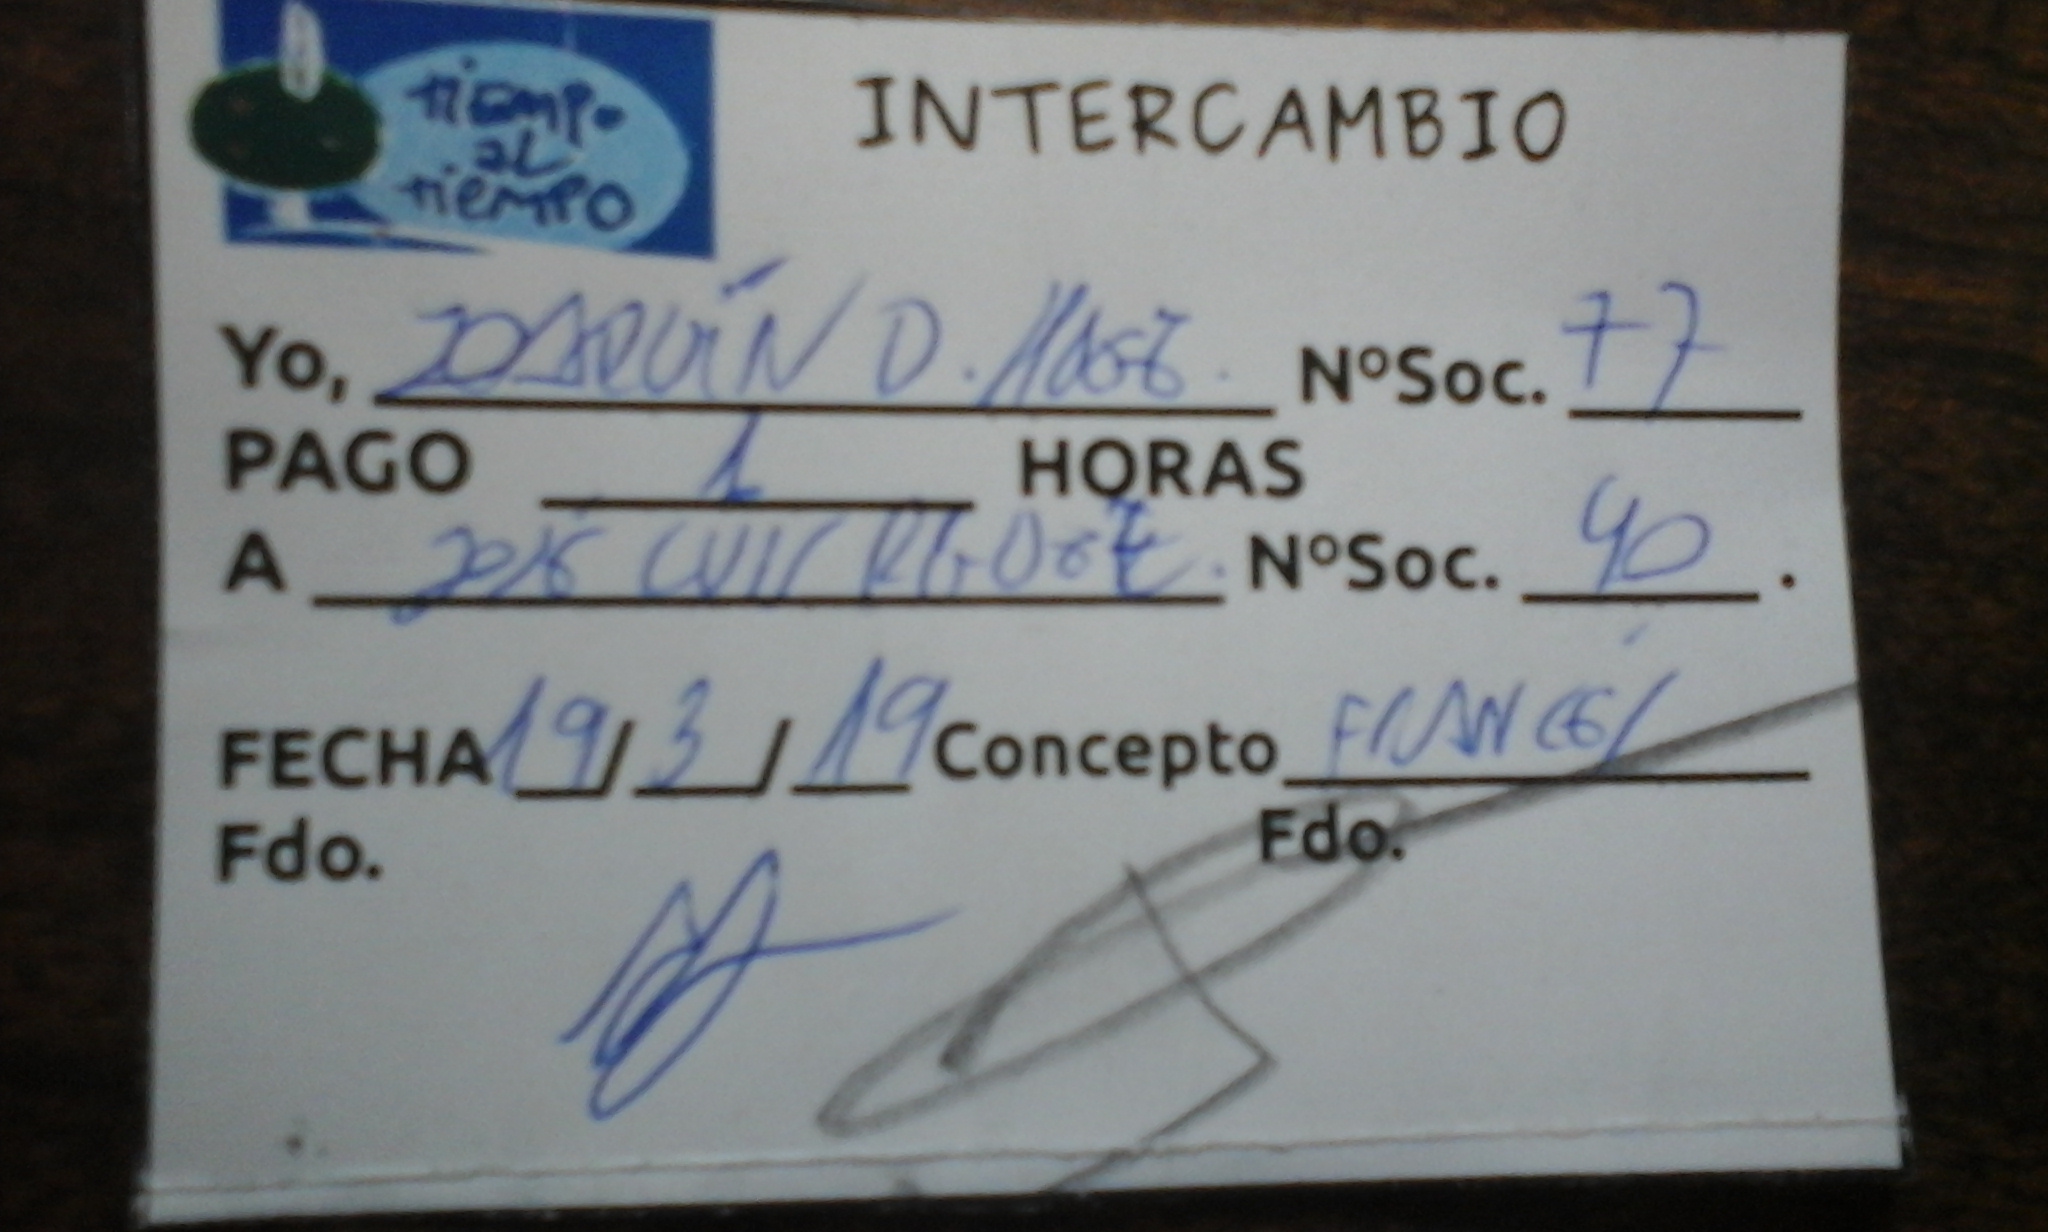 tiempo
al
tiempo
INTERCAMBIO
Yo, JOAQUÍN D. NºSoc. 77
PAGO 1 HORAS
A JOSÉ LUIS NºSoc. 40.
FECHA 19/3/19 Concepto FRANCÉS
Fdo. Fdo.